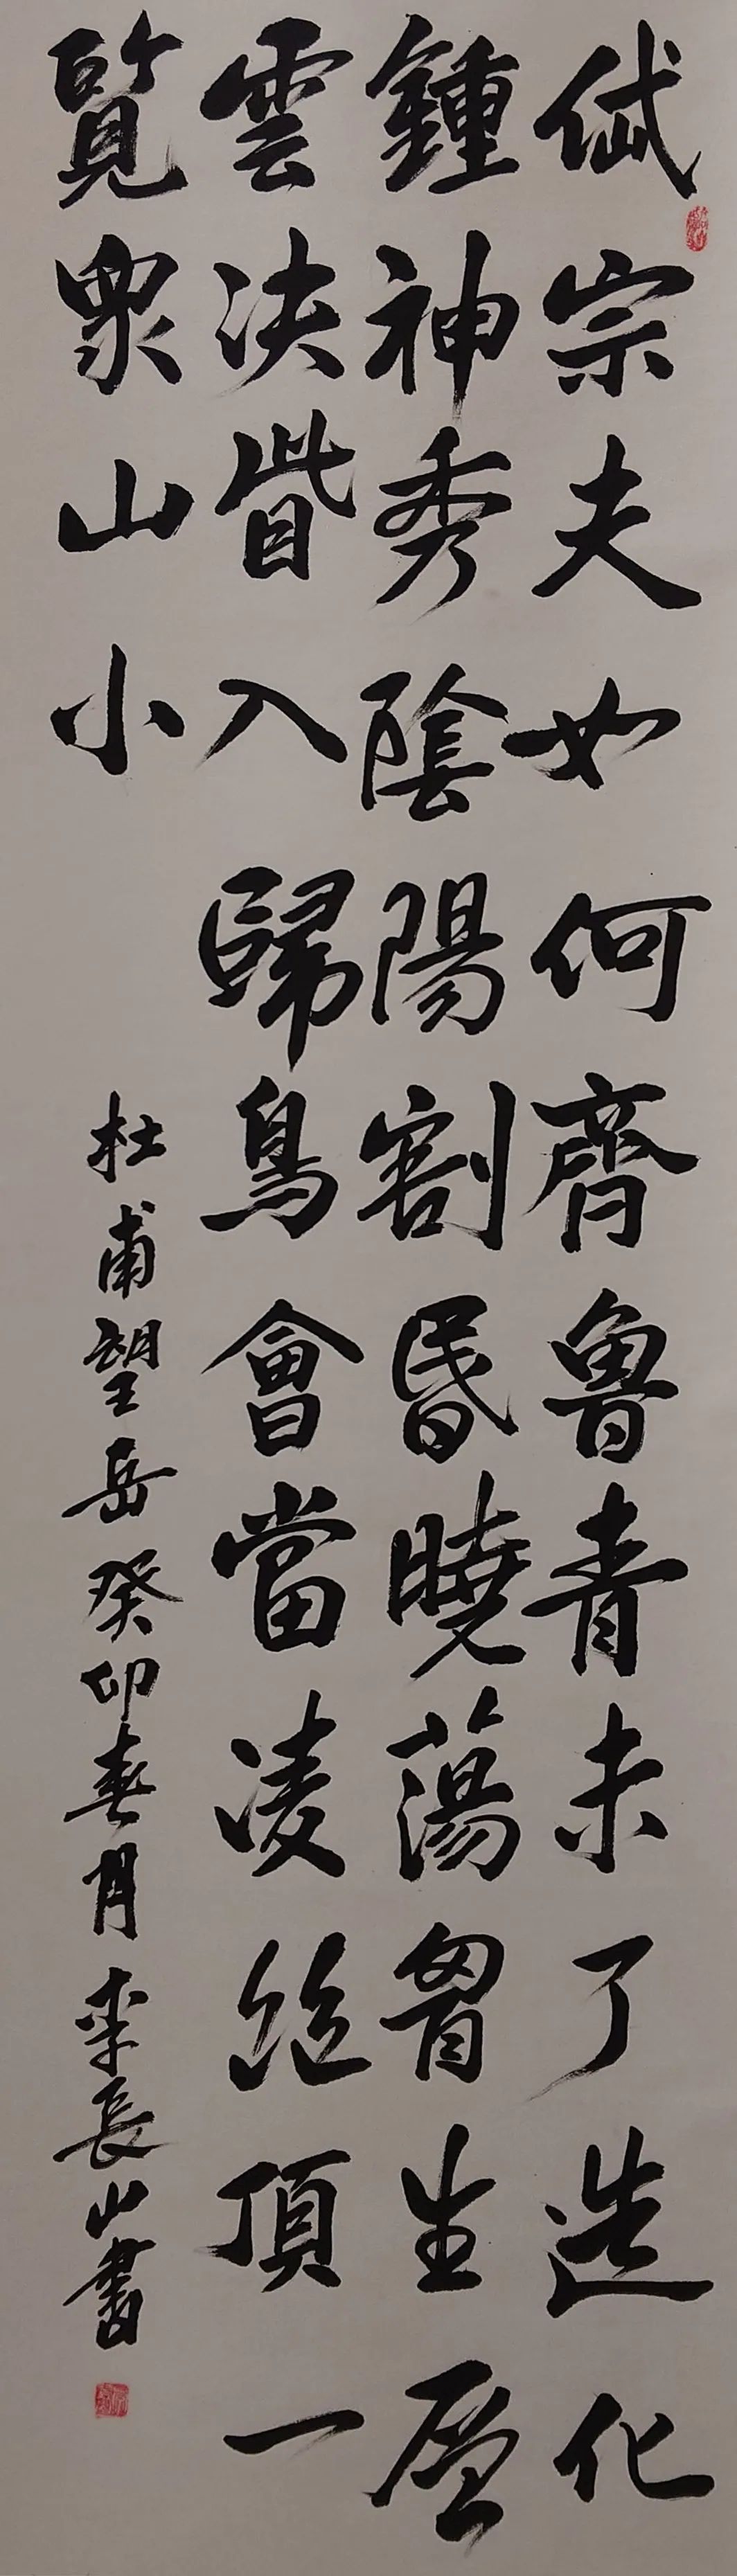 岱宗夫如何齊魯青未了造化
鍾神秀陰陽割昬曉蕩胷生層
雲決眥入歸鳥會當凌絕頂一
覽眾山小
杜甫望岳癸卯春月李長山書